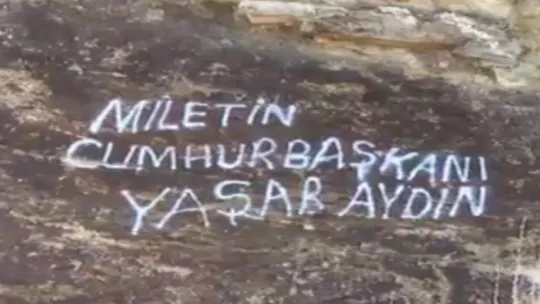 MİLETİN
CUMHURBAŞKANI
YAŞAR AYDIN